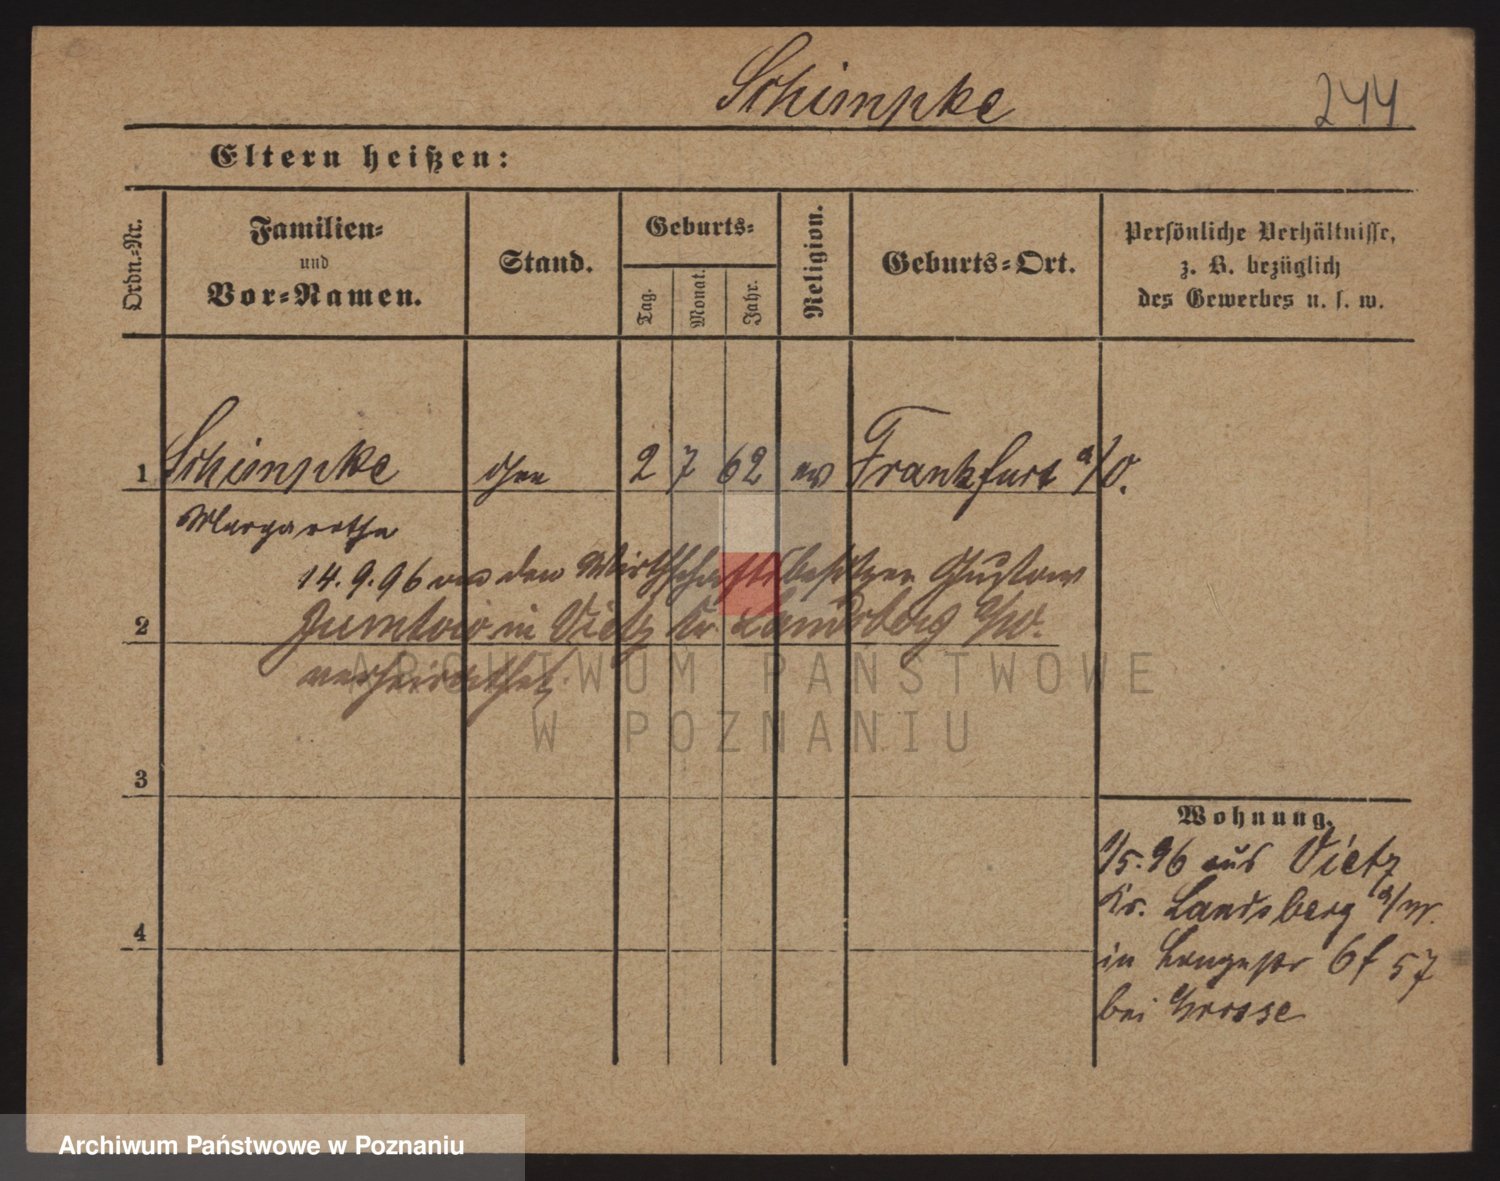 Schimpke
244
Eltern heißen:
Ordn.-Nr.
Familien-
und
Vor-Namen.
Stand.
Geburts-
Tag.
Monat.
Jahr.
Religion.
Geburts-Ort.
Persönliche Verhältnisse,
z. B. bezüglich
des Gewerbes u. s. w.
1 Schimpke 2 7 62 ev Frankfurt a/O.
Margarethe
14.9.96 an den Wirthschaftsbesitzer Gustav
2 in Vietz Kr. Landsberg a/W.
verheirathet.
ARCHIWUM PAŃSTWOWE
W POZNANIU
3
4
Wohnung.
1/5.96 aus Vietz
Kr. Landsberg a/W.
in Langestr 6f 57
bei Grosse
Archiwum Państwowe w Poznaniu